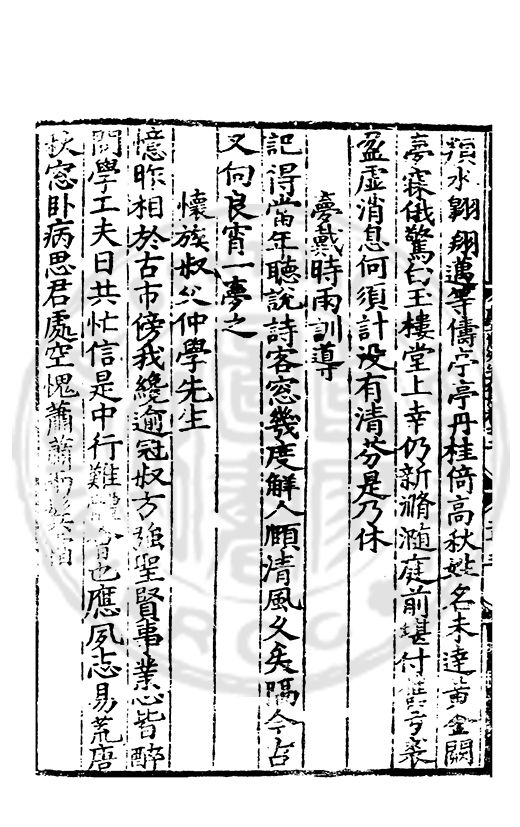 須水翱翔邁等儔亭亭丹桂倚高秋姓名未達黃金闕
夢寐俄驚白玉樓堂上幸仍新滫瀡庭前堪付舊弓裘
盈虛消息何須計没有清芬是乃休
夢戴時雨訓導
記得當年聽說詩客窓幾度解人頤清風久矣隔今古
又向良宵一夢之
懷族叔父仲學先生
憶昨相於古市傍我纔逾冠叔方強聖賢事業心皆醉
問學工夫日共忙信是中行難 也應夙志易荒唐
秋窓卧病思君處空愧蕭蕭